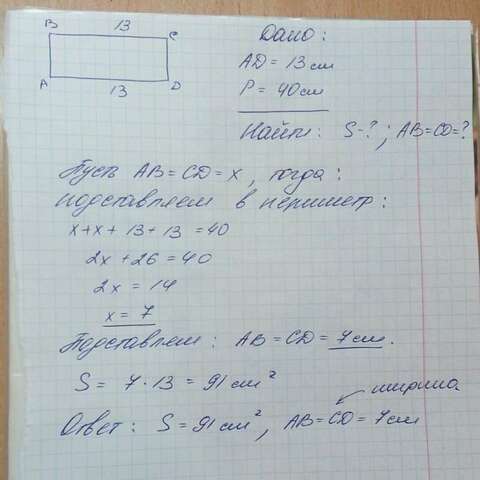 B 13 C
A 13 D
Дано:
AD = 13 см
P = 40 см
Найти: S-?; AB=CD=?
Пусть AB = CD = x, тогда:
Подставляем в периметр:
x+x+13+13 = 40
2x + 26 = 40
2x = 14
x = 7
Подставляем: AB = CD = 7 см.
S = 7·13 = 91 см²
ширина
Ответ: S = 91 см², AB = CD = 7 см